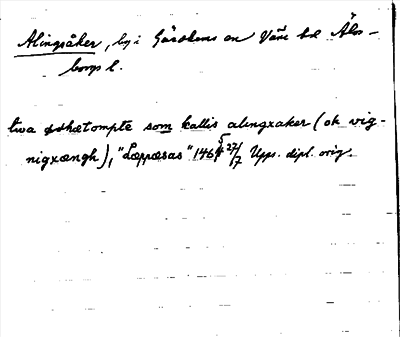 Alingsåker, by i Gäsdkens sn Väne hd Älvs-
borgs l.
twa ødhætompte som kallis alingxaker (ok vig-
nigxængh), "Læppæsas" 1465 27/7 Upps. dipl. orig.